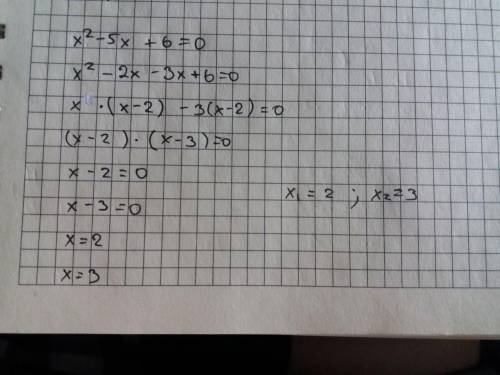 x²-5x +6=0
x² - 2x - 3x+6=0
x ·(x-2) -3(x-2)=0
(x-2)·(x-3)=0
x-2=0
x-3=0
x₁=2 ; x₂=3
x=2
x=3